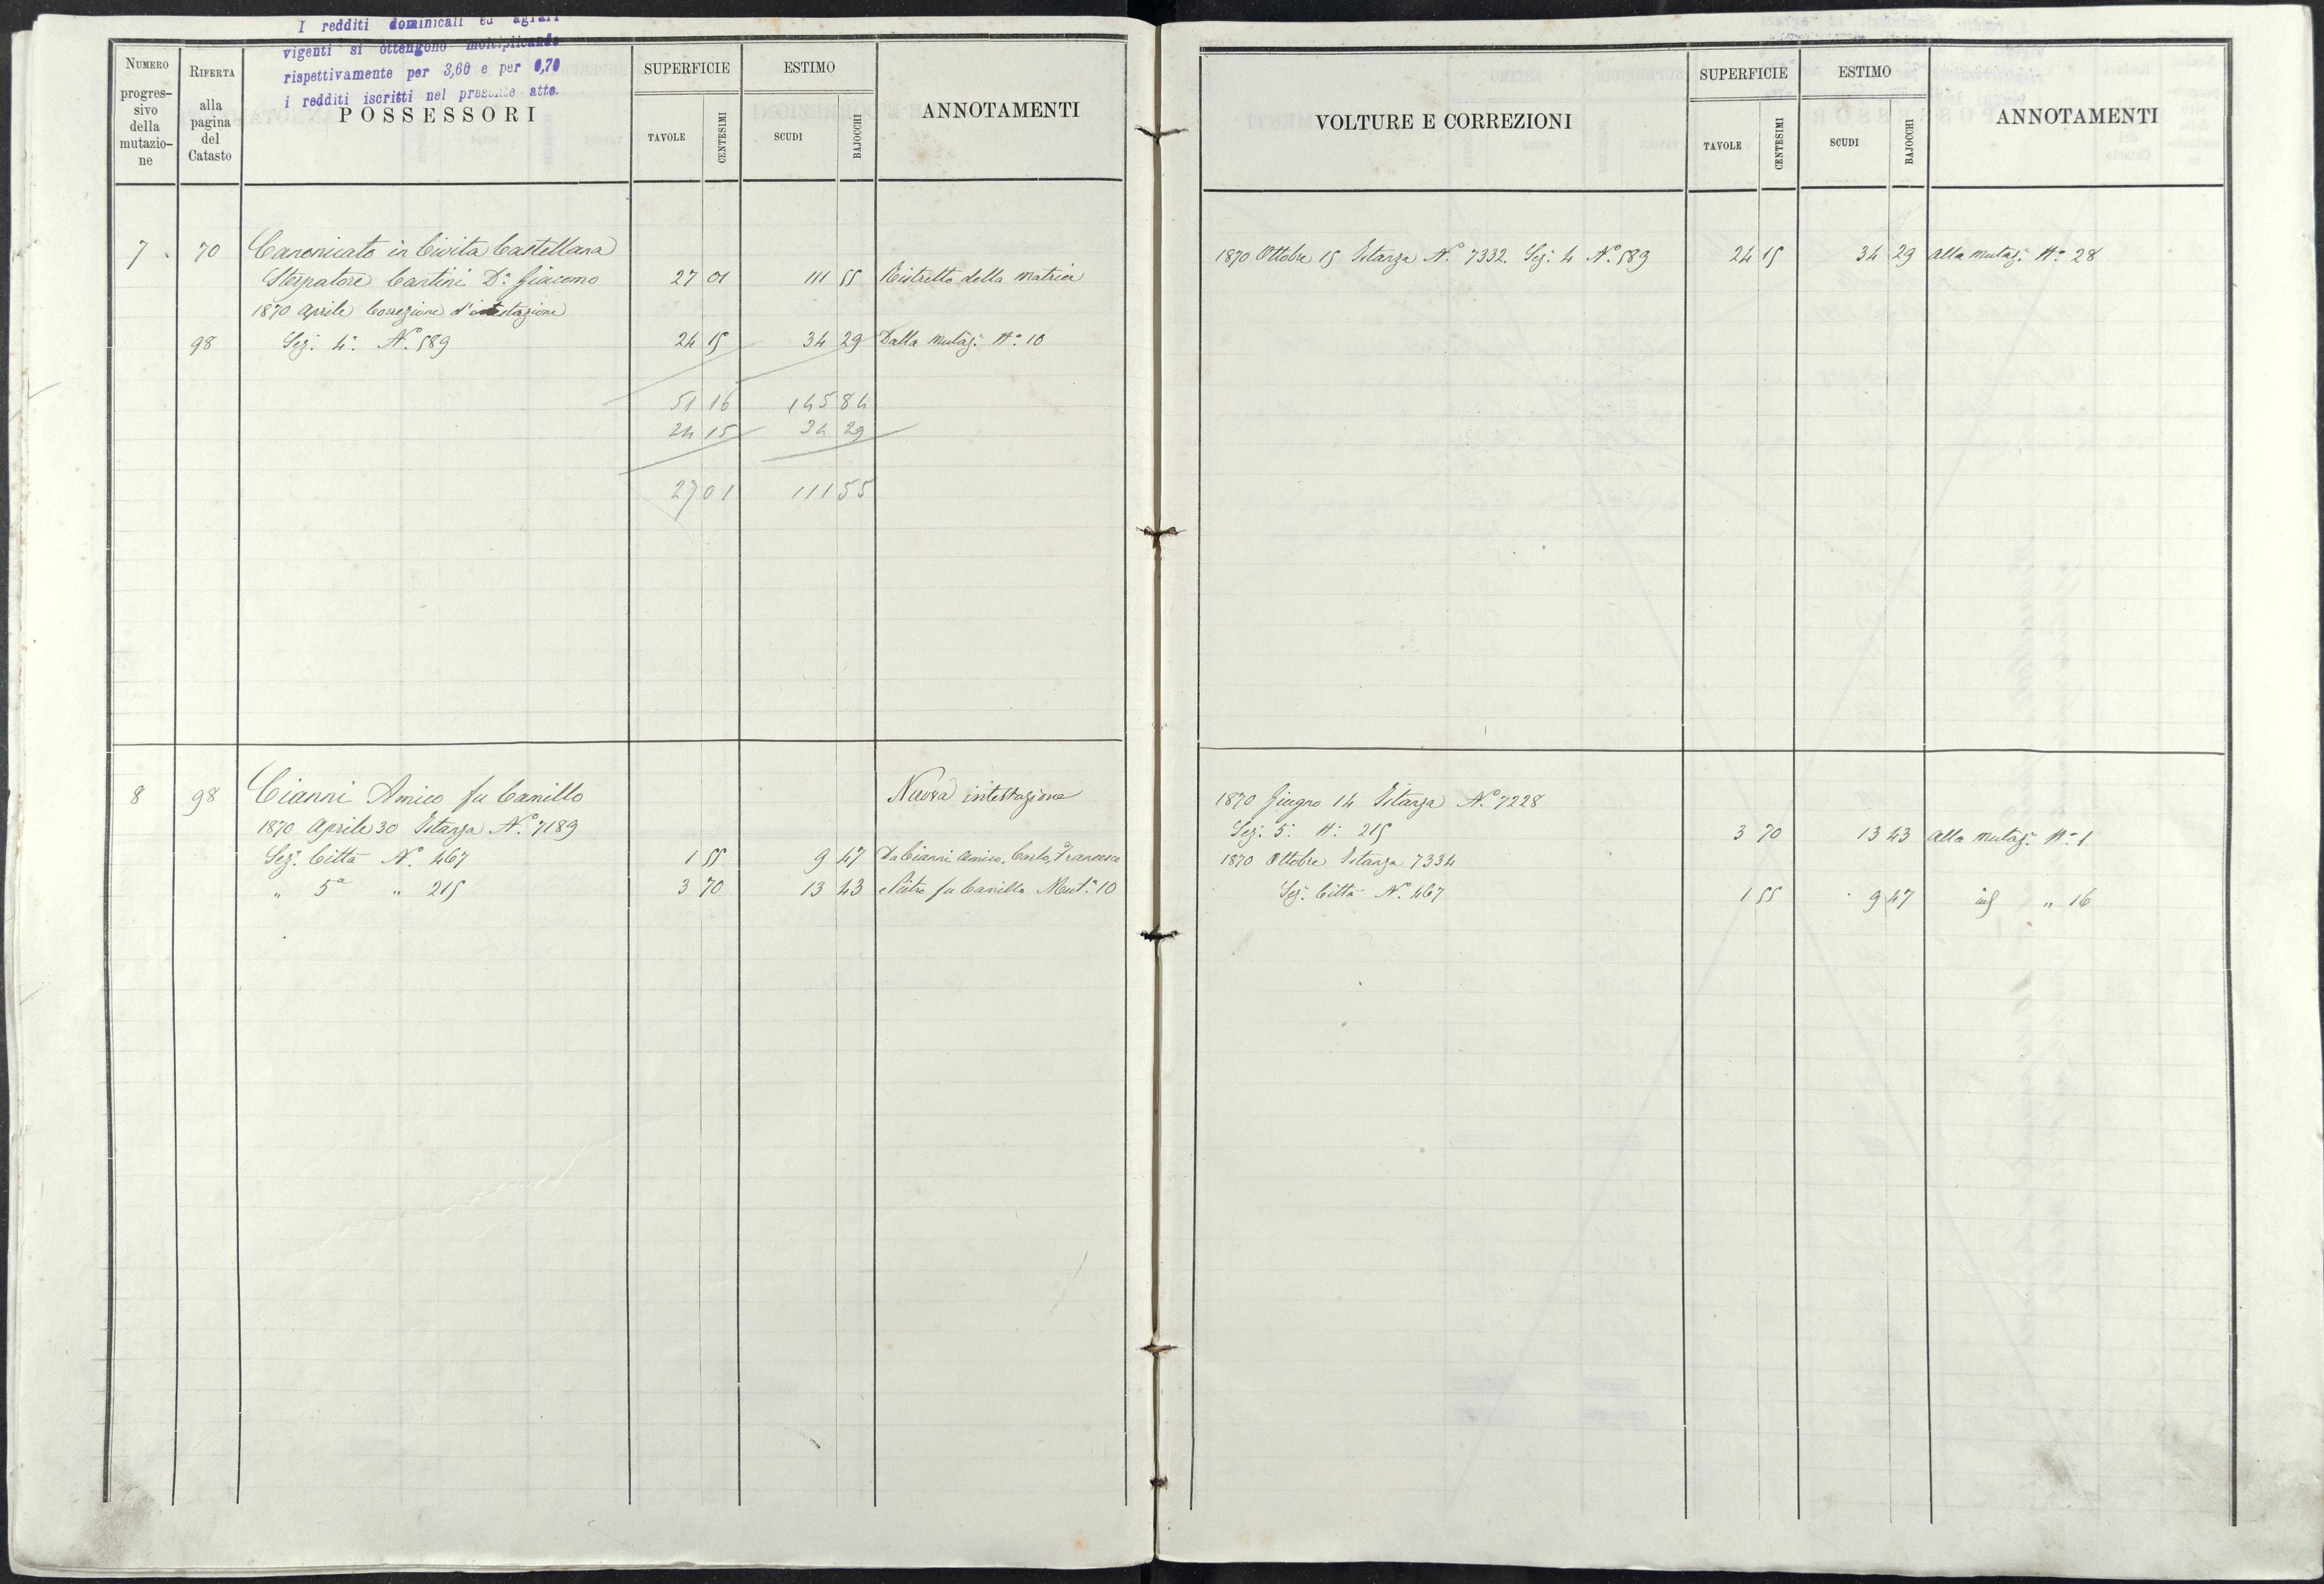 I redditi dominicali ed agrari
vigenti si ottengono moltiplicando
rispettivamente per 3,60 e per 0,70
i redditi iscritti nel presente atto.
NUMERO progres-sivo della mutazio-ne
RIFERTA alla pagina del Catasto
POSSESSORI
SUPERFICIE
TAVOLE CENTESIMI
ESTIMO
SCUDI BAJOCCHI
ANNOTAMENTI
7 70 Canonicato in Civita Castellana
Cartini Dn Giacomo 27 01 111 55 Ristretto della matrice
1870 Aprile Correzione d'intestazione
98 Sez: 4: No. 589 24 15 34 29 Dalla mutaz: No 10
51 16 145 84
24 15 34 29
27 01 111 55
8 98 Cianni Amico fu Camillo Nuova intestazione
1870 Aprile 30 Istanza No. 7189
Sez: Città No. 467 1 55 9 47 Da Cianni Amico, Carlo, Francesco
" 5a " 215 3 70 13 43 e Pietro fu Camillo Mut: 10
VOLTURE E CORREZIONI
SUPERFICIE
TAVOLE CENTESIMI
ESTIMO
SCUDI BAJOCCHI
ANNOTAMENTI
1870 Ottobre 15 Istanza No. 7332. Sez: 4 No. 589 24 15 34 29 Alla mutaz: No 28
1870 Giugno 14 Istanza No. 7228
Sez: 5: No: 215 3 70 13 43 Alla mutaz: No 1
1870 Ottobre Istanza 7334
Sez: Città No. 467 1 55 9 47 " 16